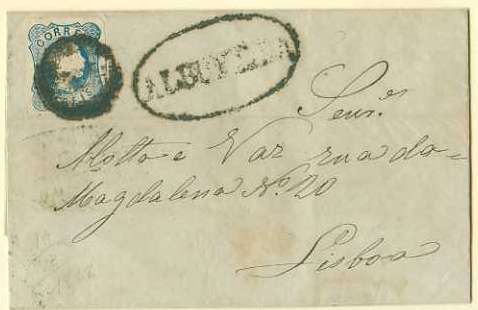 CORRE
ALBUFEIRA
Senr.es
Motta e Vaz rua da
Magdalena Nº 20
Lisboa